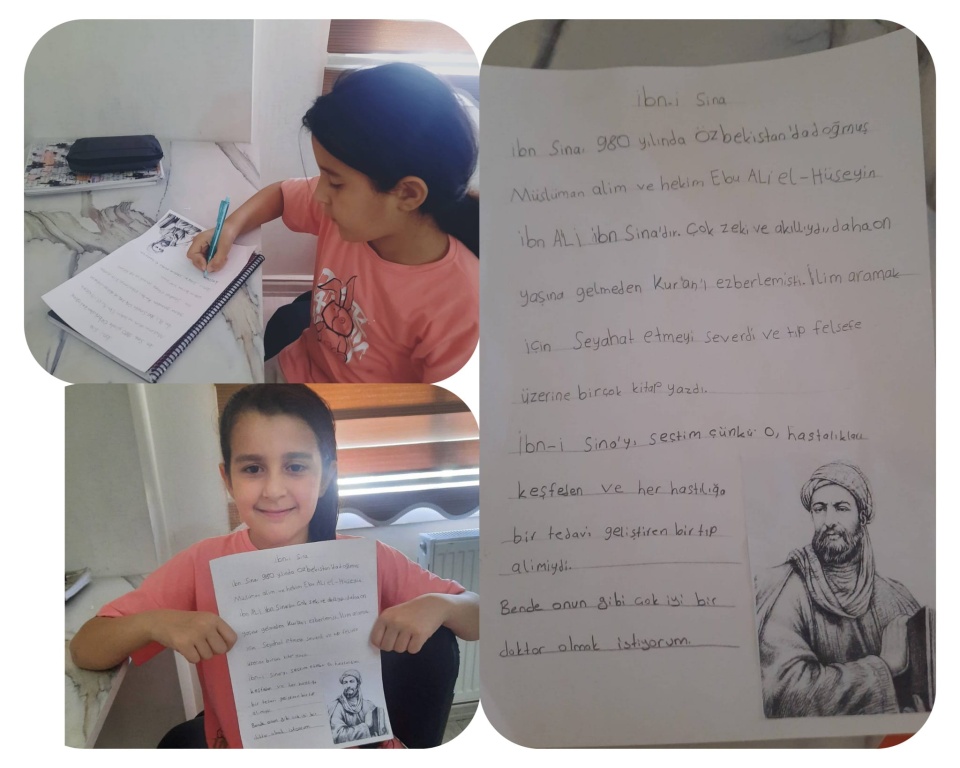 ibn-i Sina
ibn Sina, 980 yılında Özbekistan'da doğmuş
Müslüman alim ve hekim, Ebu ALi el-Hüseyin
ibn ALi ibn Sina'dır. Çok zeki ve akıllıydı, daha on
yaşına gelmeden Kur'an'ı ezberlemişti. İlim aramak
için Seyahat etmeyi severdi ve tıp felsefe
üzerine birçok kitap yazdı.
İbn-i Sina'yı seçtim çünkü O, hastalıkları
keşfeden ve her hastlığa
bir tedavi geliştiren bir tıp
alimiydi.
Bende onun gibi çok iyi bir
doktor olmak istiyorum.